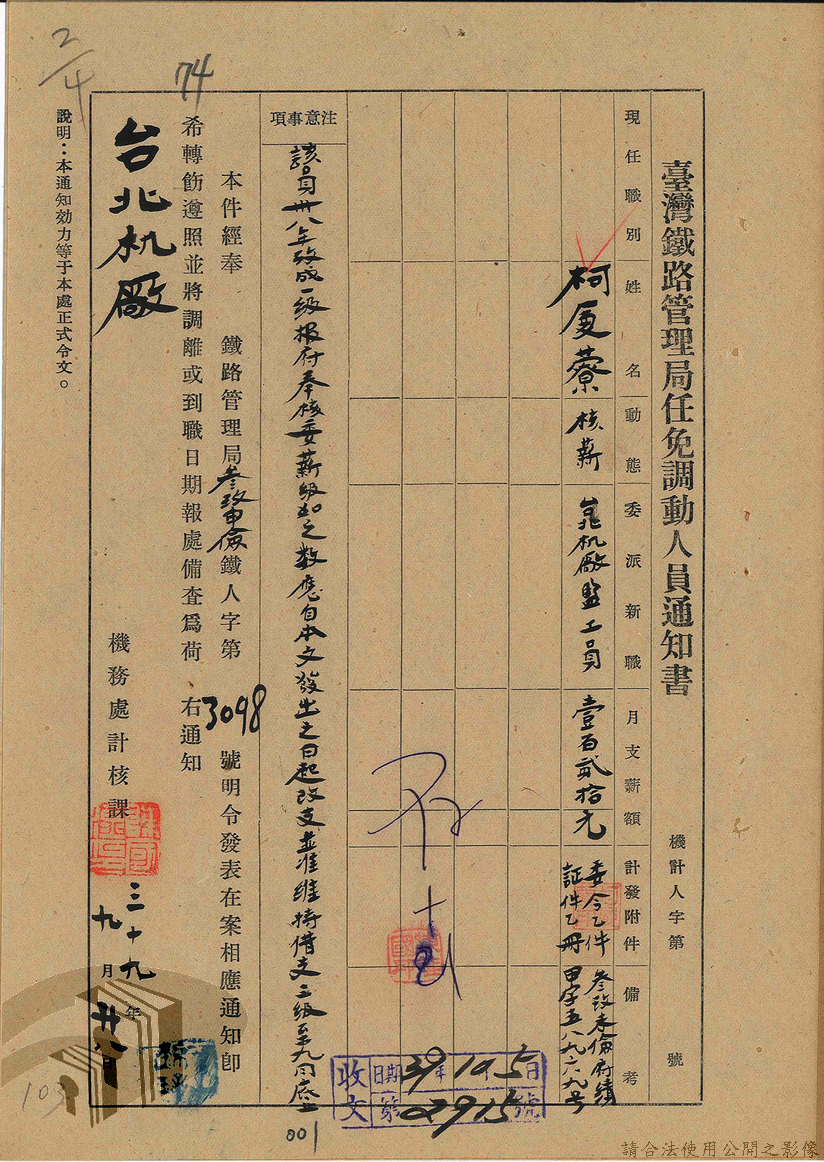 臺灣鐵路管理局任免調動人員通知書
機計人字第　號
現任職別
姓名
動態
委派新職
月支薪額
計發附件
備考
柯厦藔
核薪
台北机廠監工員
壹百貳拾元
委令乙件
証件乙冊
參玖未儉府績
甲字五八九六九号
注意事項
該員卅八年攷成一級报府奉核委薪級如之数應自本文發出之日起改支並准維持借支三級至九月底止
本件經奉　鐵路管理局參玖申儉鐵人字第3098號明令發表在案相應通知卽
希轉飭遵照並將調離或到職日期報處備查爲荷　右通知
台北机廠
機務處計核課
三十九年
九月廿八日
說明：本通知効力等于本處正式令文。
收文
日期39年10月5日
第2915號
2/4
74
001
103
請合法使用公開之影像